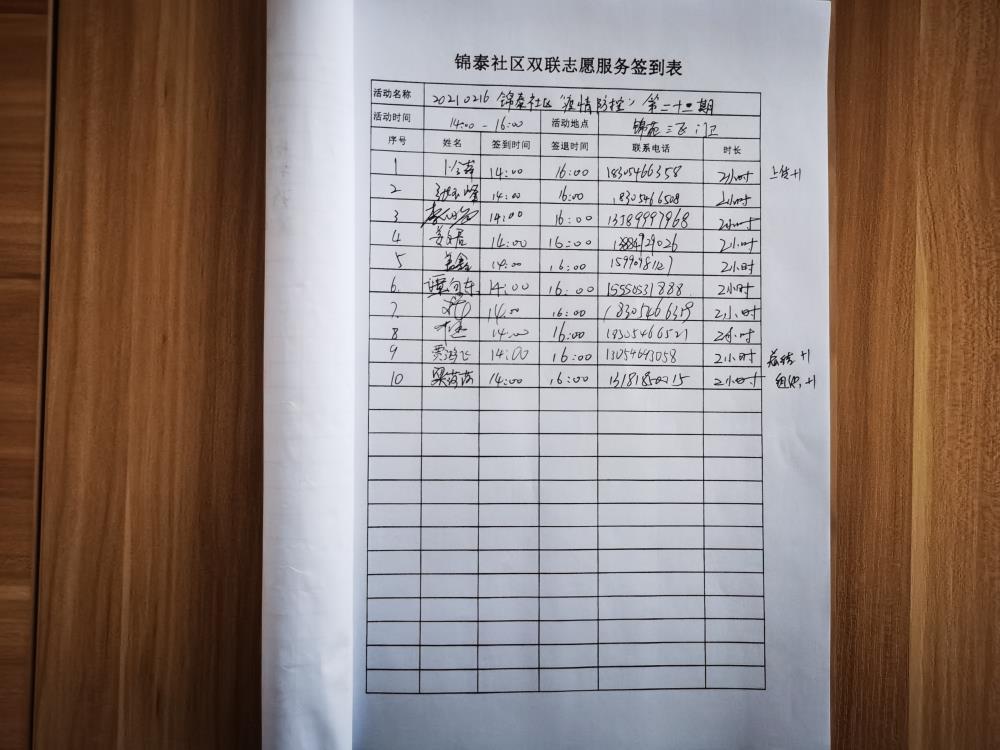 锦泰社区双联志愿服务签到表
活动名称 20210216 锦泰社区"疫情防控"第二十一期
活动时间 14:00-16:00 活动地点 锦苑三区门卫
序号 姓名 签到时间 签退时间 联系电话 时长
1 14:00 16:00 18305466358 2小时 上传+1
2 14:00 16:00 18305466508 2小时
3 14:00 16:00 13589997968 2小时
4 14:00 16:00 13884929026 2小时
5 14:00 16:00 2小时
6. 14:00 16:00 15550531888 2小时
7. 14:00 16:00 18305466359 2小时
8 14:00 16:00 18305466521 2小时
9 贾鸿飞 14:00 16:00 13054693058 2小时 总结+1
10 14:00 16:00 13181850015 2小时 组织+1